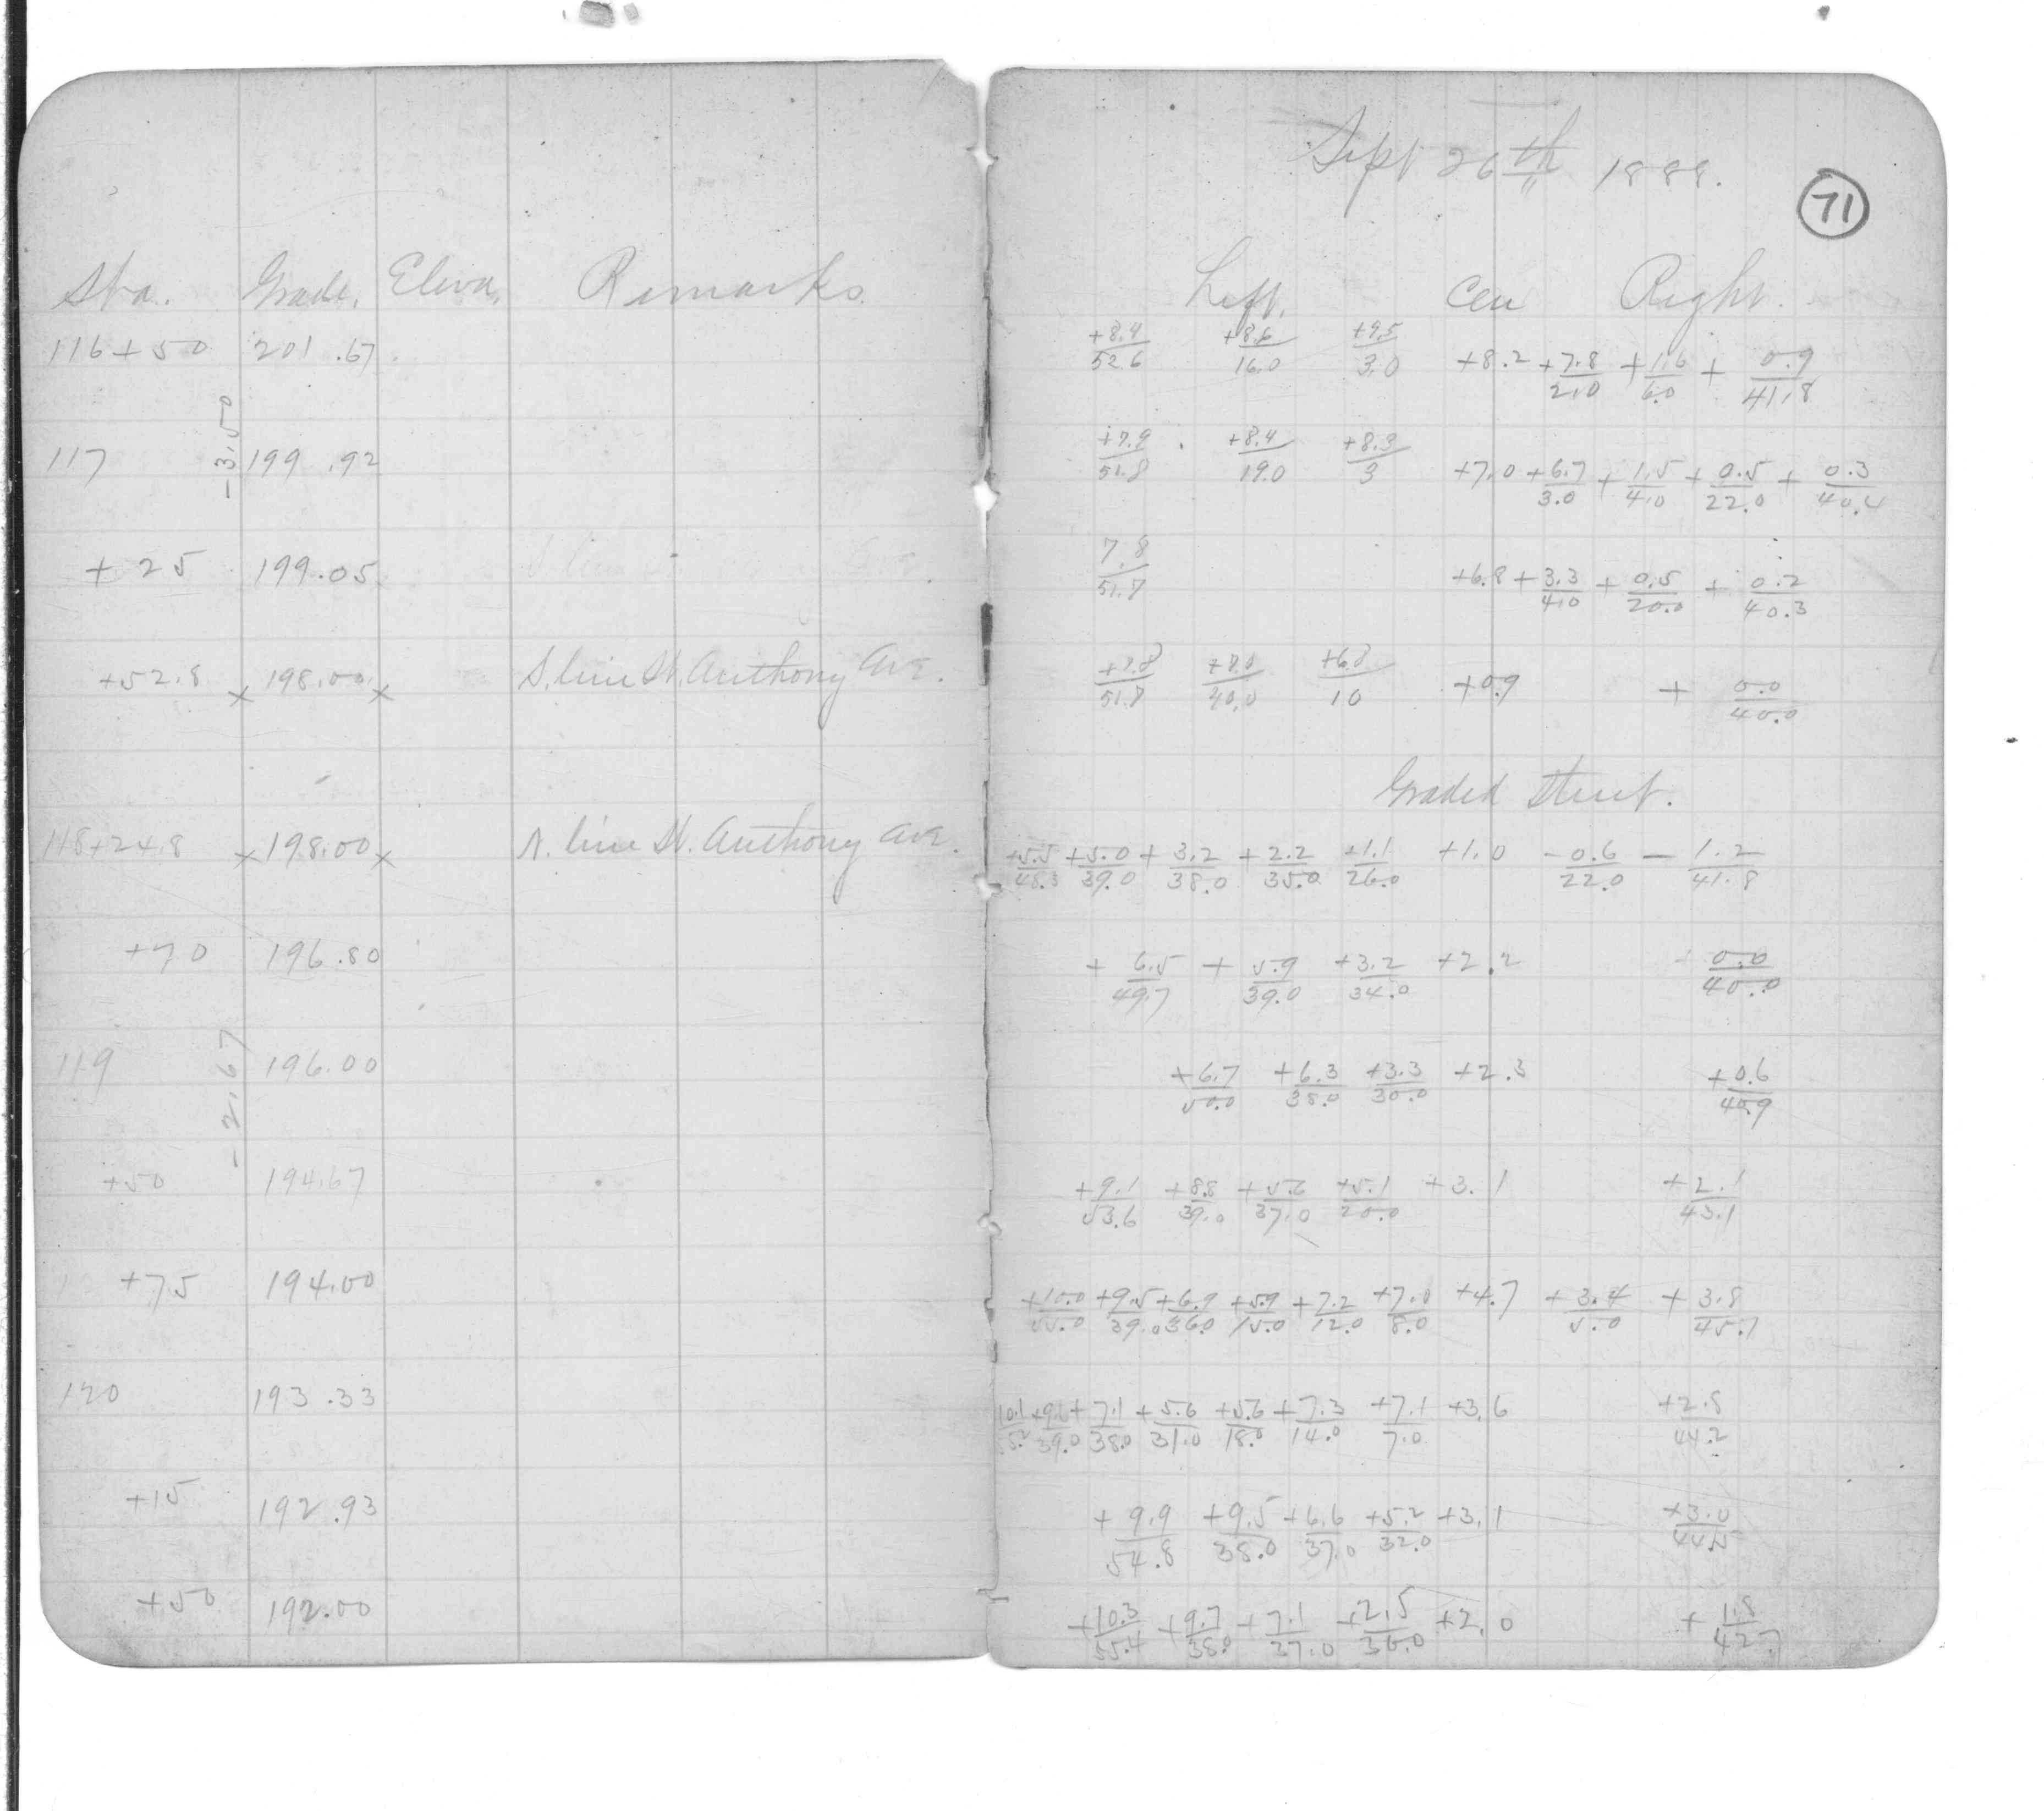 Sept 26th 1888.
71
Sta. Grade. Eleva. Remarks
Left. Cen Right.
116+50 201.67 +8.4/52.6 +8.6/16.0 +9.5/3.0 +8.2 +7.8/2.0 +1.6/6.0 + 0.9/41.8
-3.50
117 199.92 +7.9/51.8 +8.4/19.0 +8.3/3 +7.0 +6.7/3.0 + 1.5/4.0 + 0.5/22.0 + 0.3/40.4
+25 199.05 7.8/51.7 +6.8 + 3.3/4.0 + 0.5/20.0 + 0.2/40.3
+52.8 x 198.00 x S. line St. Anthony Ave. +7.8/51.7 40.0 10 +0.9 + 0.0/40.0
Graded Street.
118+24.8 x 198.00 x N. line St. Anthony Ave. +5.5/48.3 +5.0/39.0 + 3.2/38.0 + 2.2/35.0 +1.1/26.0 +1.0 -0.6/22.0 - 1.2/41.8
+70 196.80 + 6.5/49.7 + 5.9/39.0 +3.2/34.0 +2.2 0.0/40.0
119 196.00 +6.7/50.0 +6.3/38.0 +3.3/30.0 +2.3 +0.6/40.9
-2.67
+50 194.67 +9.1/53.6 +8.8/39.0 +5.6/37.0 +5.1/20.0 +3.1 +2.1/43.1
+75 194.00 +10.0/55.0 +9.5/39.0 +6.9/36.0 +5.9/15.0 +7.2/12.0 +7.0/8.0 +4.7 + 3.4/5.0 + 3.8/45.7
120 193.33 10.1 +9.6/39.0 + 7.1/38.0 +5.6/31.0 +5.6/18.0 +7.3/14.0 +7.1/7.0 +3.6 +2.8/44.2
+15 192.93 + 9.9/54.8 +9.5/38.0 +6.6/37.0 +5.2/32.0 +3.1 +3.0/44.5
+50 192.00 +10.3/55.4 +9.7/38.0 +7.1/37.0 +2.5/36.0 +2.0 + 1.8/42.7